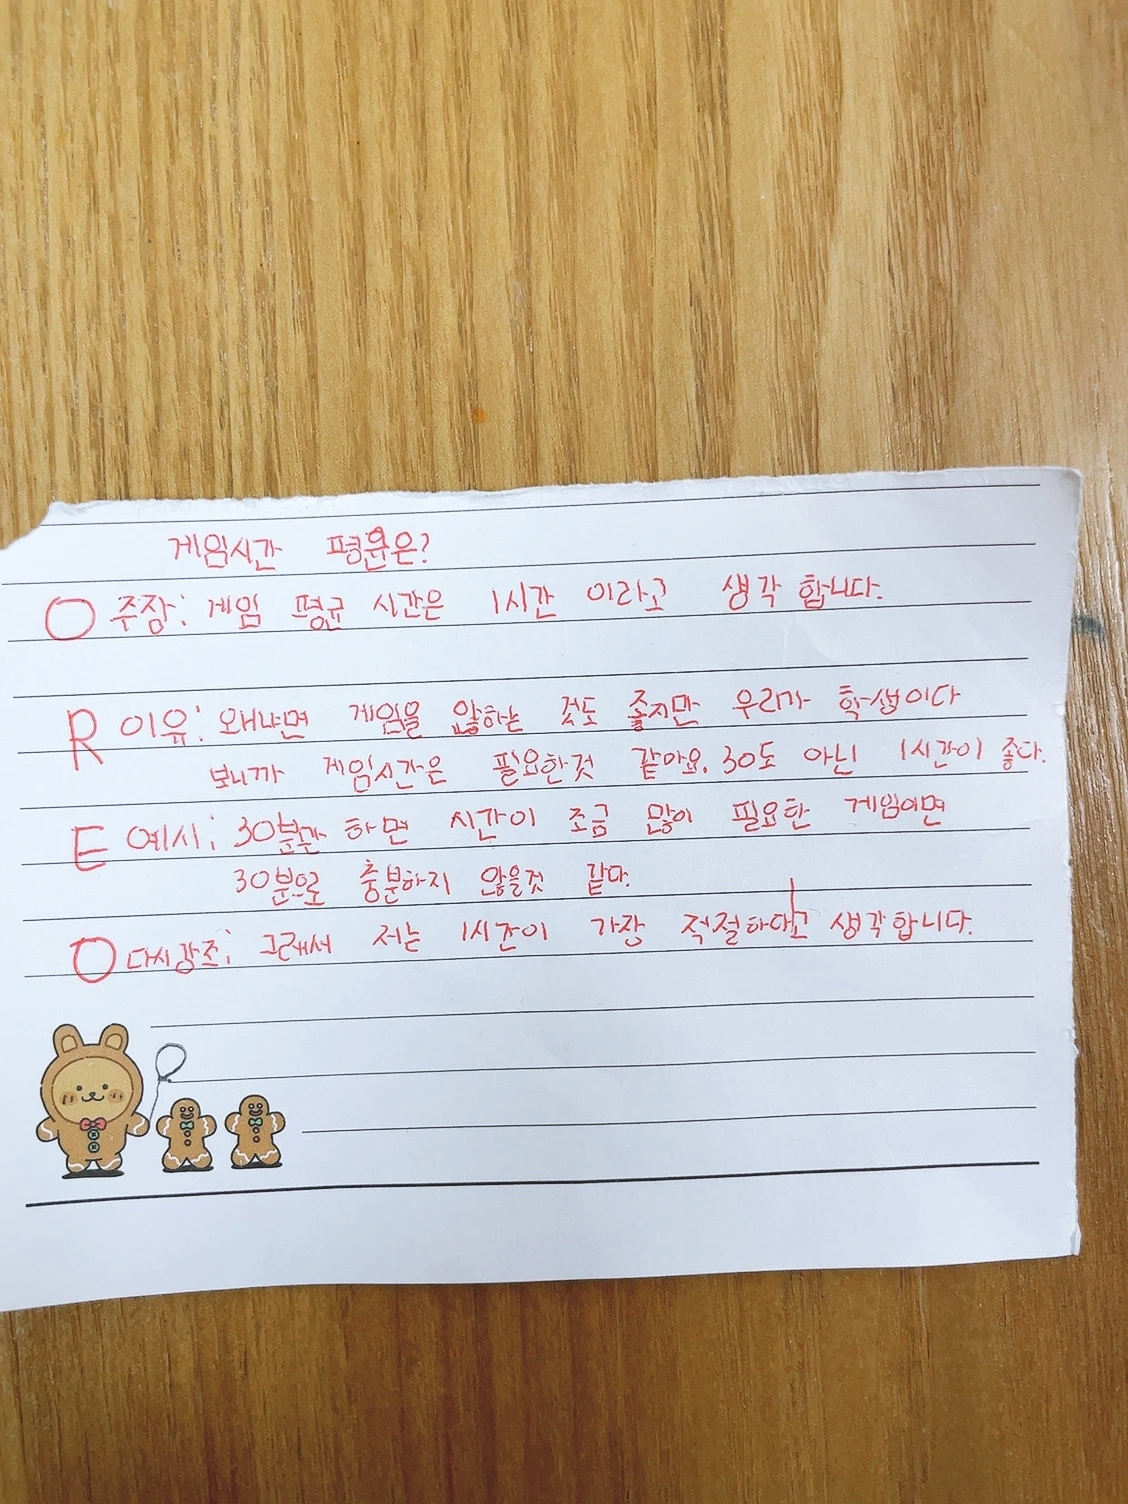 게임시간 평균은?
O 주장: 게임 평균 시간은 1시간 이라고 생각 합니다.
R 이유: 왜냐면 게임을 않하는 것도 좋지만 우리가 학생이다
보니까 게임시간은 필요한것 같아요. 30도 아닌 1시간이 좋다.
E 예시: 30분만 하면 시간이 조금 많이 필요한 게임이면
30분으로 충분하지 않을것 같다.
O 다시강조: 그래서 저는 1시간이 가장 적절하다고 생각합니다.